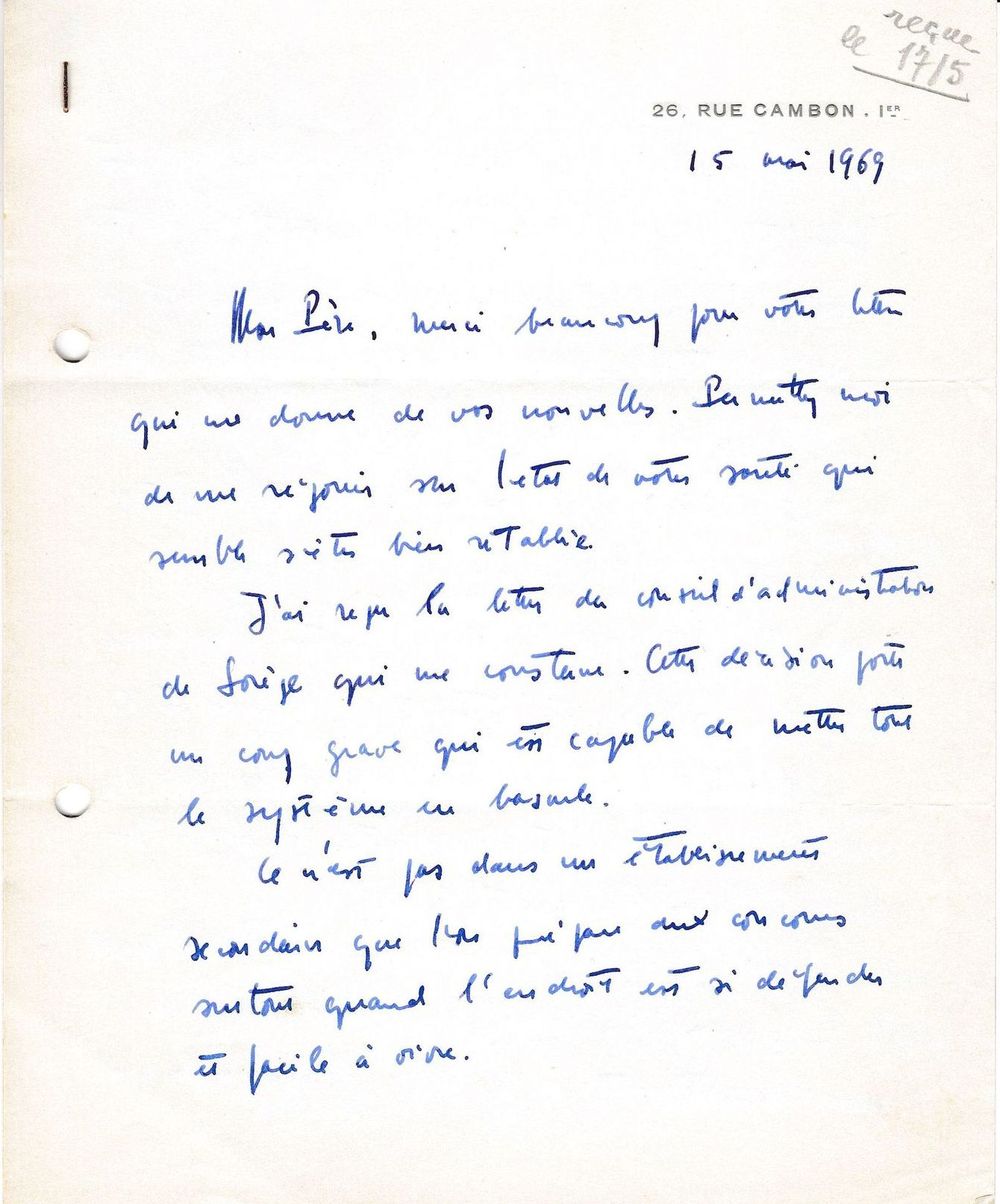 reçue
le 17/5
26, RUE CAMBON . IER
15 mai 1969
Mon Père, merci beaucoup pour votre lettre
qui me donne de vos nouvelles. Permettez moi
de me réjouir sur l'état de votre santé qui
semble s'être bien rétablie.
J'ai reçu la lettre du conseil d'administration
de Sorèze qui me consterne. Cette décision porte
un coup grave qui est capable de mettre tout
le système en bascule.
Ce n'est pas dans un établissement
secondaire que l'on prépare aux concours
surtout quand l'endroit est si
et facile à vivre.